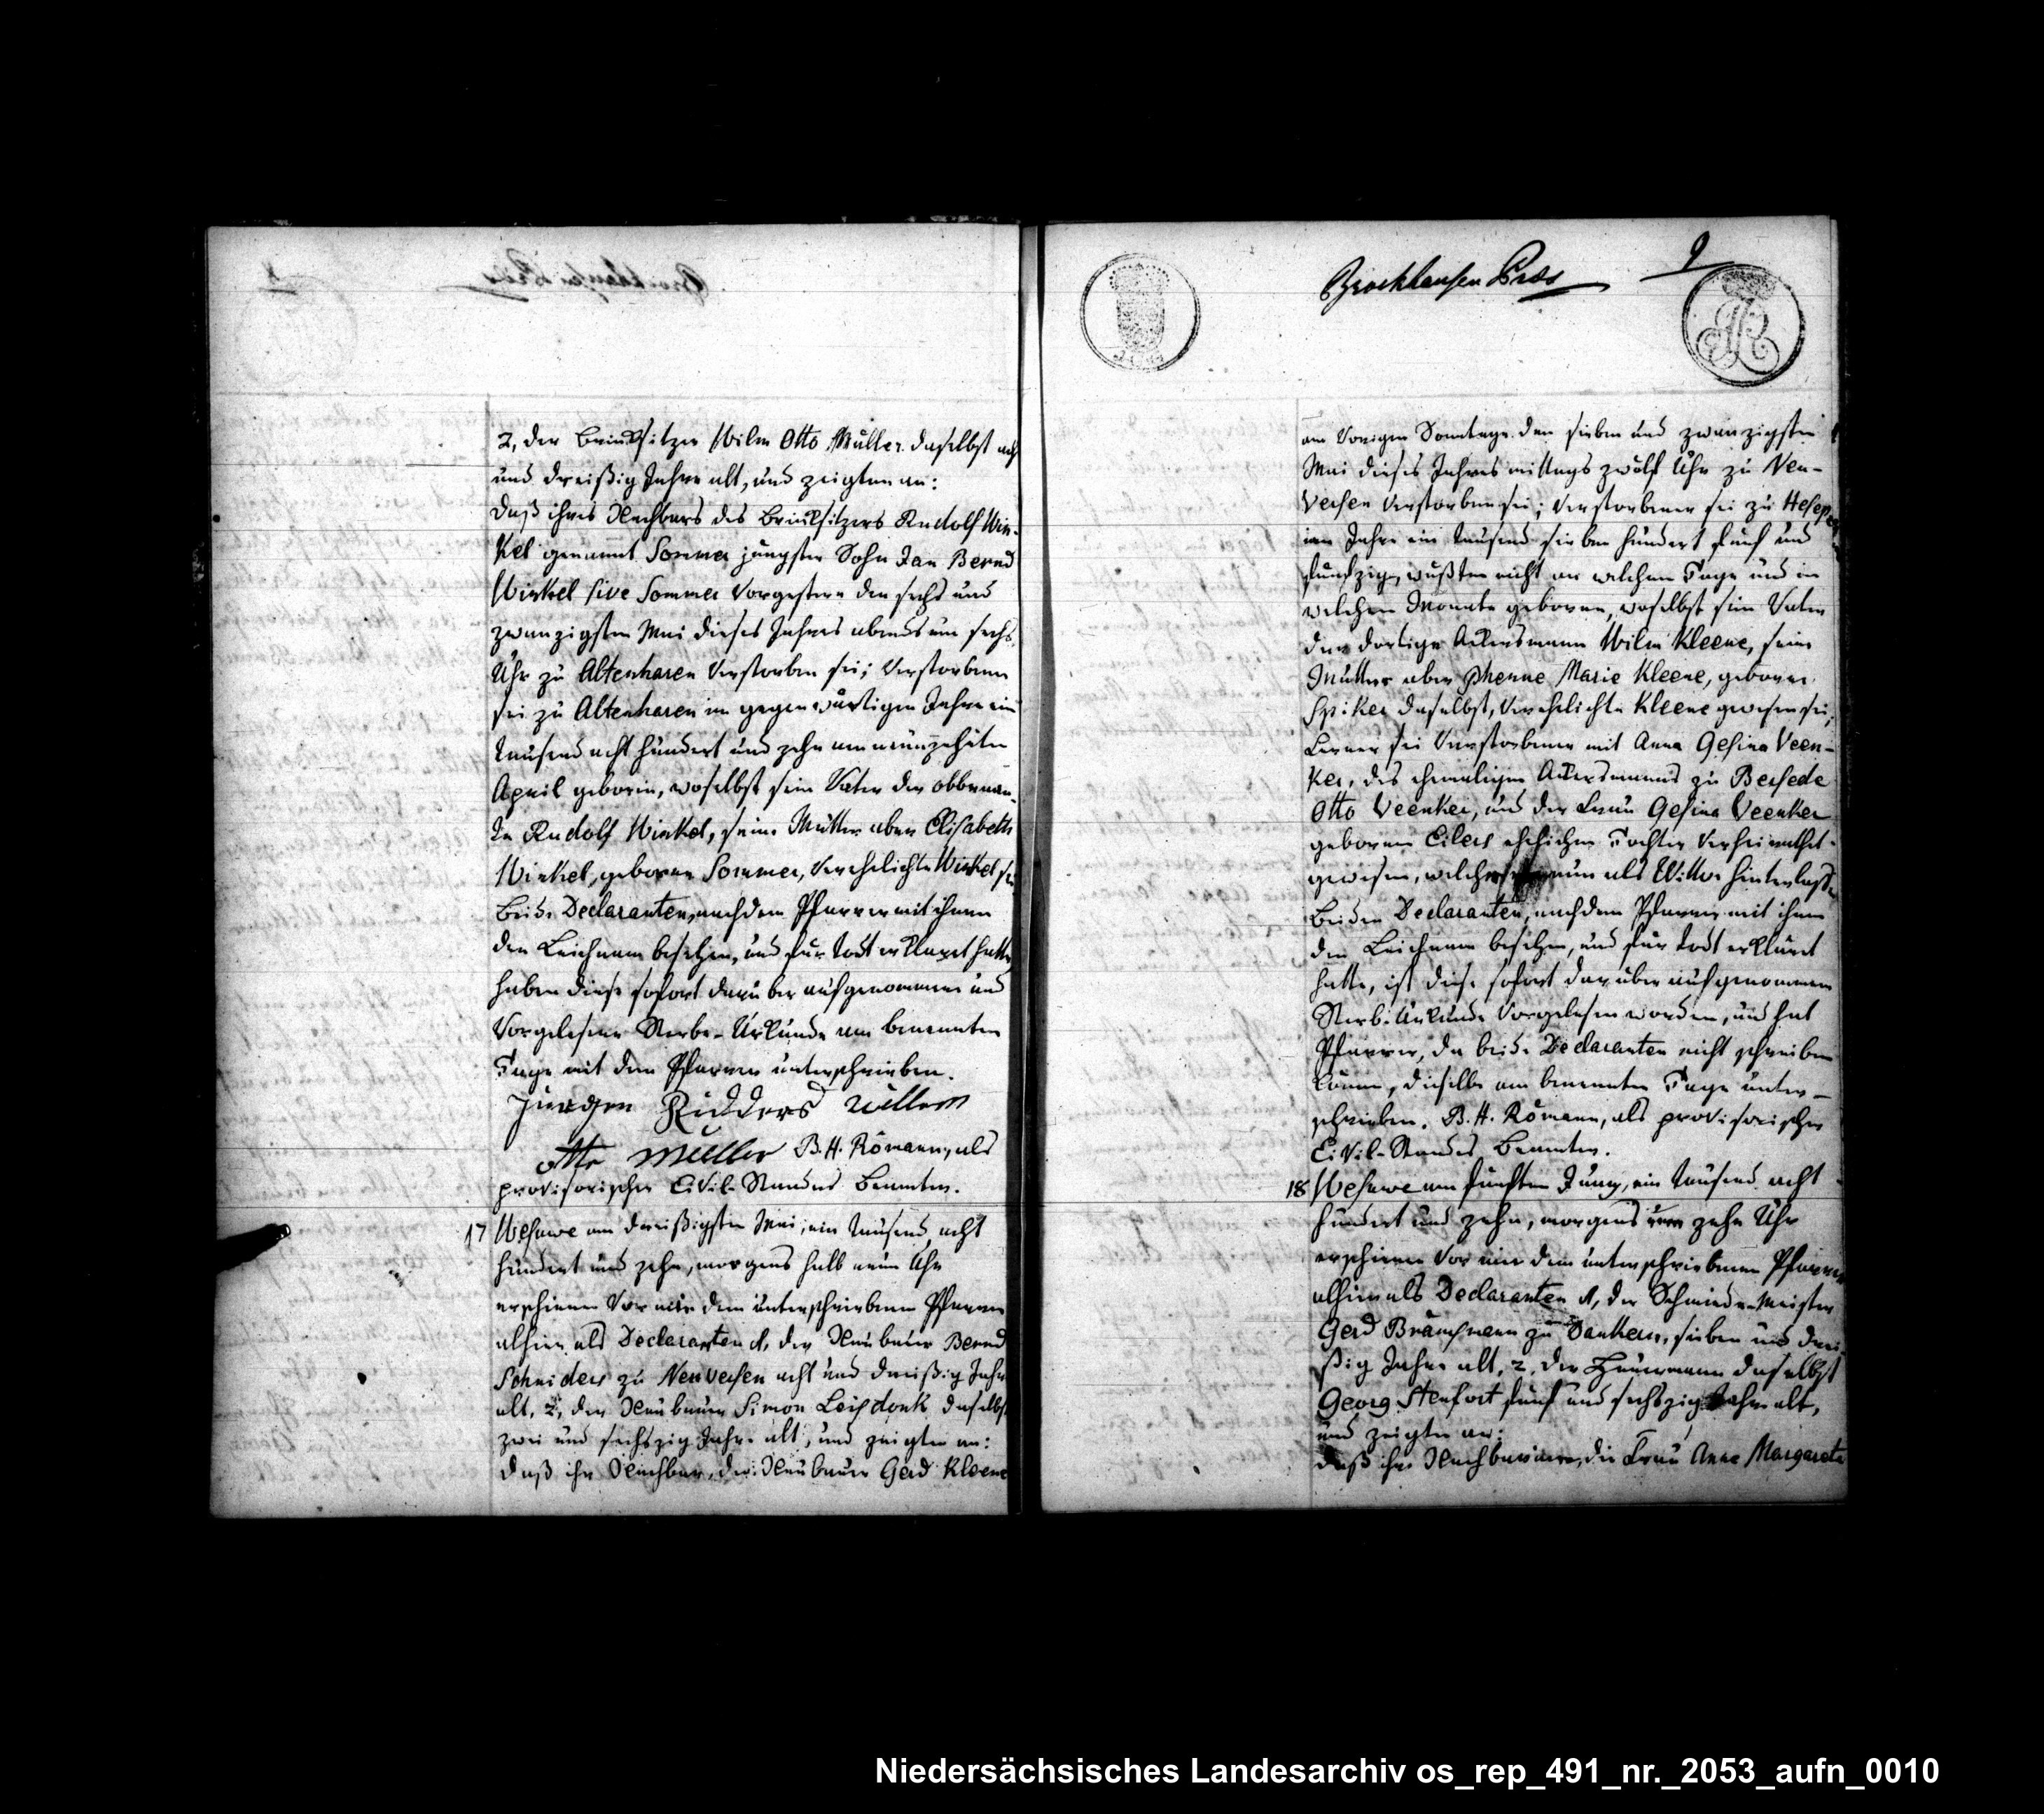 2, der Brinksitzer Wilm Otto Müller daselbst acht
und dreißig Jahre alt, und zeigten an:
daß ihres Nachbars des Brinksitzers Rudolf Win-
kel genannt Sommer jüngster Sohn Jan Bernd
Winkel sive Sommer vorgestern den sechs und
zwanzigsten Mai dieses Jahres abends um sechs
Uhr zu Altenharen verstorben sei; verstorbener
sei zu Altenharen im gegenwärtigen Jahre ein
tausend acht hundert und zehn am neunzehnten
April geboren, woselbst sein Vater der obbenan-
te Rudolf Winkel, seine Mutter aber Elisabeth
Winkel, geborne Sommer, verehelichte Winkel sei
Beide Declaranten, nachdem Pfarrer mit ihnen
den Leichnam besehen, und für todt erklaret hatte,
haben diese sofort darüber aufgenommene und
vorgelesene Sterbe-Urkunde am benannten
Tage mit dem Pfarrer unterschrieben.
Juergen Ridders willem
otto müller B. H. Römann, als
provisorischer Civil-Standes Beamten.
17 Wesuwe am dreißigsten Mai, ein tausend acht
hundert und zehn, morgens halb neun Uhr
erschienen vor mir dem unterschriebenen Pfarrer
alhier als Declaranten 1, der Neubauer Bernd
Schniders zu Neuversen acht und dreißig Jahre
alt, 2, der Neubauer Simon daselbst
zwei und sechszig Jahre alt, und zeigten an:
daß ihr Nachbar, der Neubauer Gerd Kleene
Brockhausen Präs 9
am vorigen Sonntage den sieben und zwanzigsten
Mai dieses Jahres mittags zwölf Uhr zu Neu-
versen verstorben sei; verstorbener sei zu Hesepe
im Jahre ein tausend sieben hundert fünf und
funfzig, wußten nicht an welchem Tage und in
welchem Monate geboren, woselbst sein Vater
der dortige Ackersmann Wilm Kleene, seine
Mutter aber Marie Kleene, geborne
Spiker daselbst, verehelichte Kleene gewesen sei;
ferner sei verstorbener mit Anna Gesina Veen-
ker, des ehemaligen Ackersmanns zu Versede
Otto Veenker, und der Frau Gesina Veenker
gebornen Eilers ehelichen Tochter verheirathet
gewesen, welche nun als Wittwe hinterlasse
Beiden Declaranten, nachdem Pfarrer mit ihnen
den Leichnam besehen, und für todt erkläret
hatte, ist diese sofort darüber aufgenommene
Sterb-Urkunde vorgelesen worden, und hat
Pfarrer, da beide Declaranten nicht schreiben
können, dieselbe am benannten Tage unter-
schrieben. B. H. Römann, als provisorischer
Civil-Standes Beamten.
18 Wesuwe am fünften Juny, ein tausend acht
hundert und zehn, morgens um zehn Uhr
erschienen vor mir dem unterschriebenen Pfarrer
alhier als Declaranten 1, der Schmiede-Meister
Gerd zu Dankern, sieben und drei-
ßig Jahre alt, 2, der Heuermann daselbst
Georg Stenfort fünf und sechszig Jahre alt,
und zeigten an:
daß ihre Nachbarinn, die Frau Anna Margareta
Niedersächsisches Landesarchiv os_rep_491_nr._2053_aufn_0010